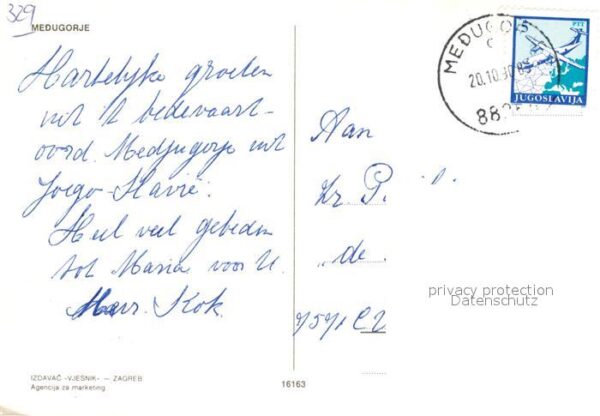 329
MEDUGORJE
Hartelijke groeten
uit 't bedevaart-
oord Medjugorje uit
Joego-Slavië.
Heel veel gebeden
tot Maria voor U.
Kok.
Aan
P.
de
7571 CZ
MEDUGOR
20.10.90
PTT
JUGOSLAVIJA
privacy protection
Datenschutz
IZDAVAČ «VJESNIK» — ZAGREB
Agencija za marketing
16163